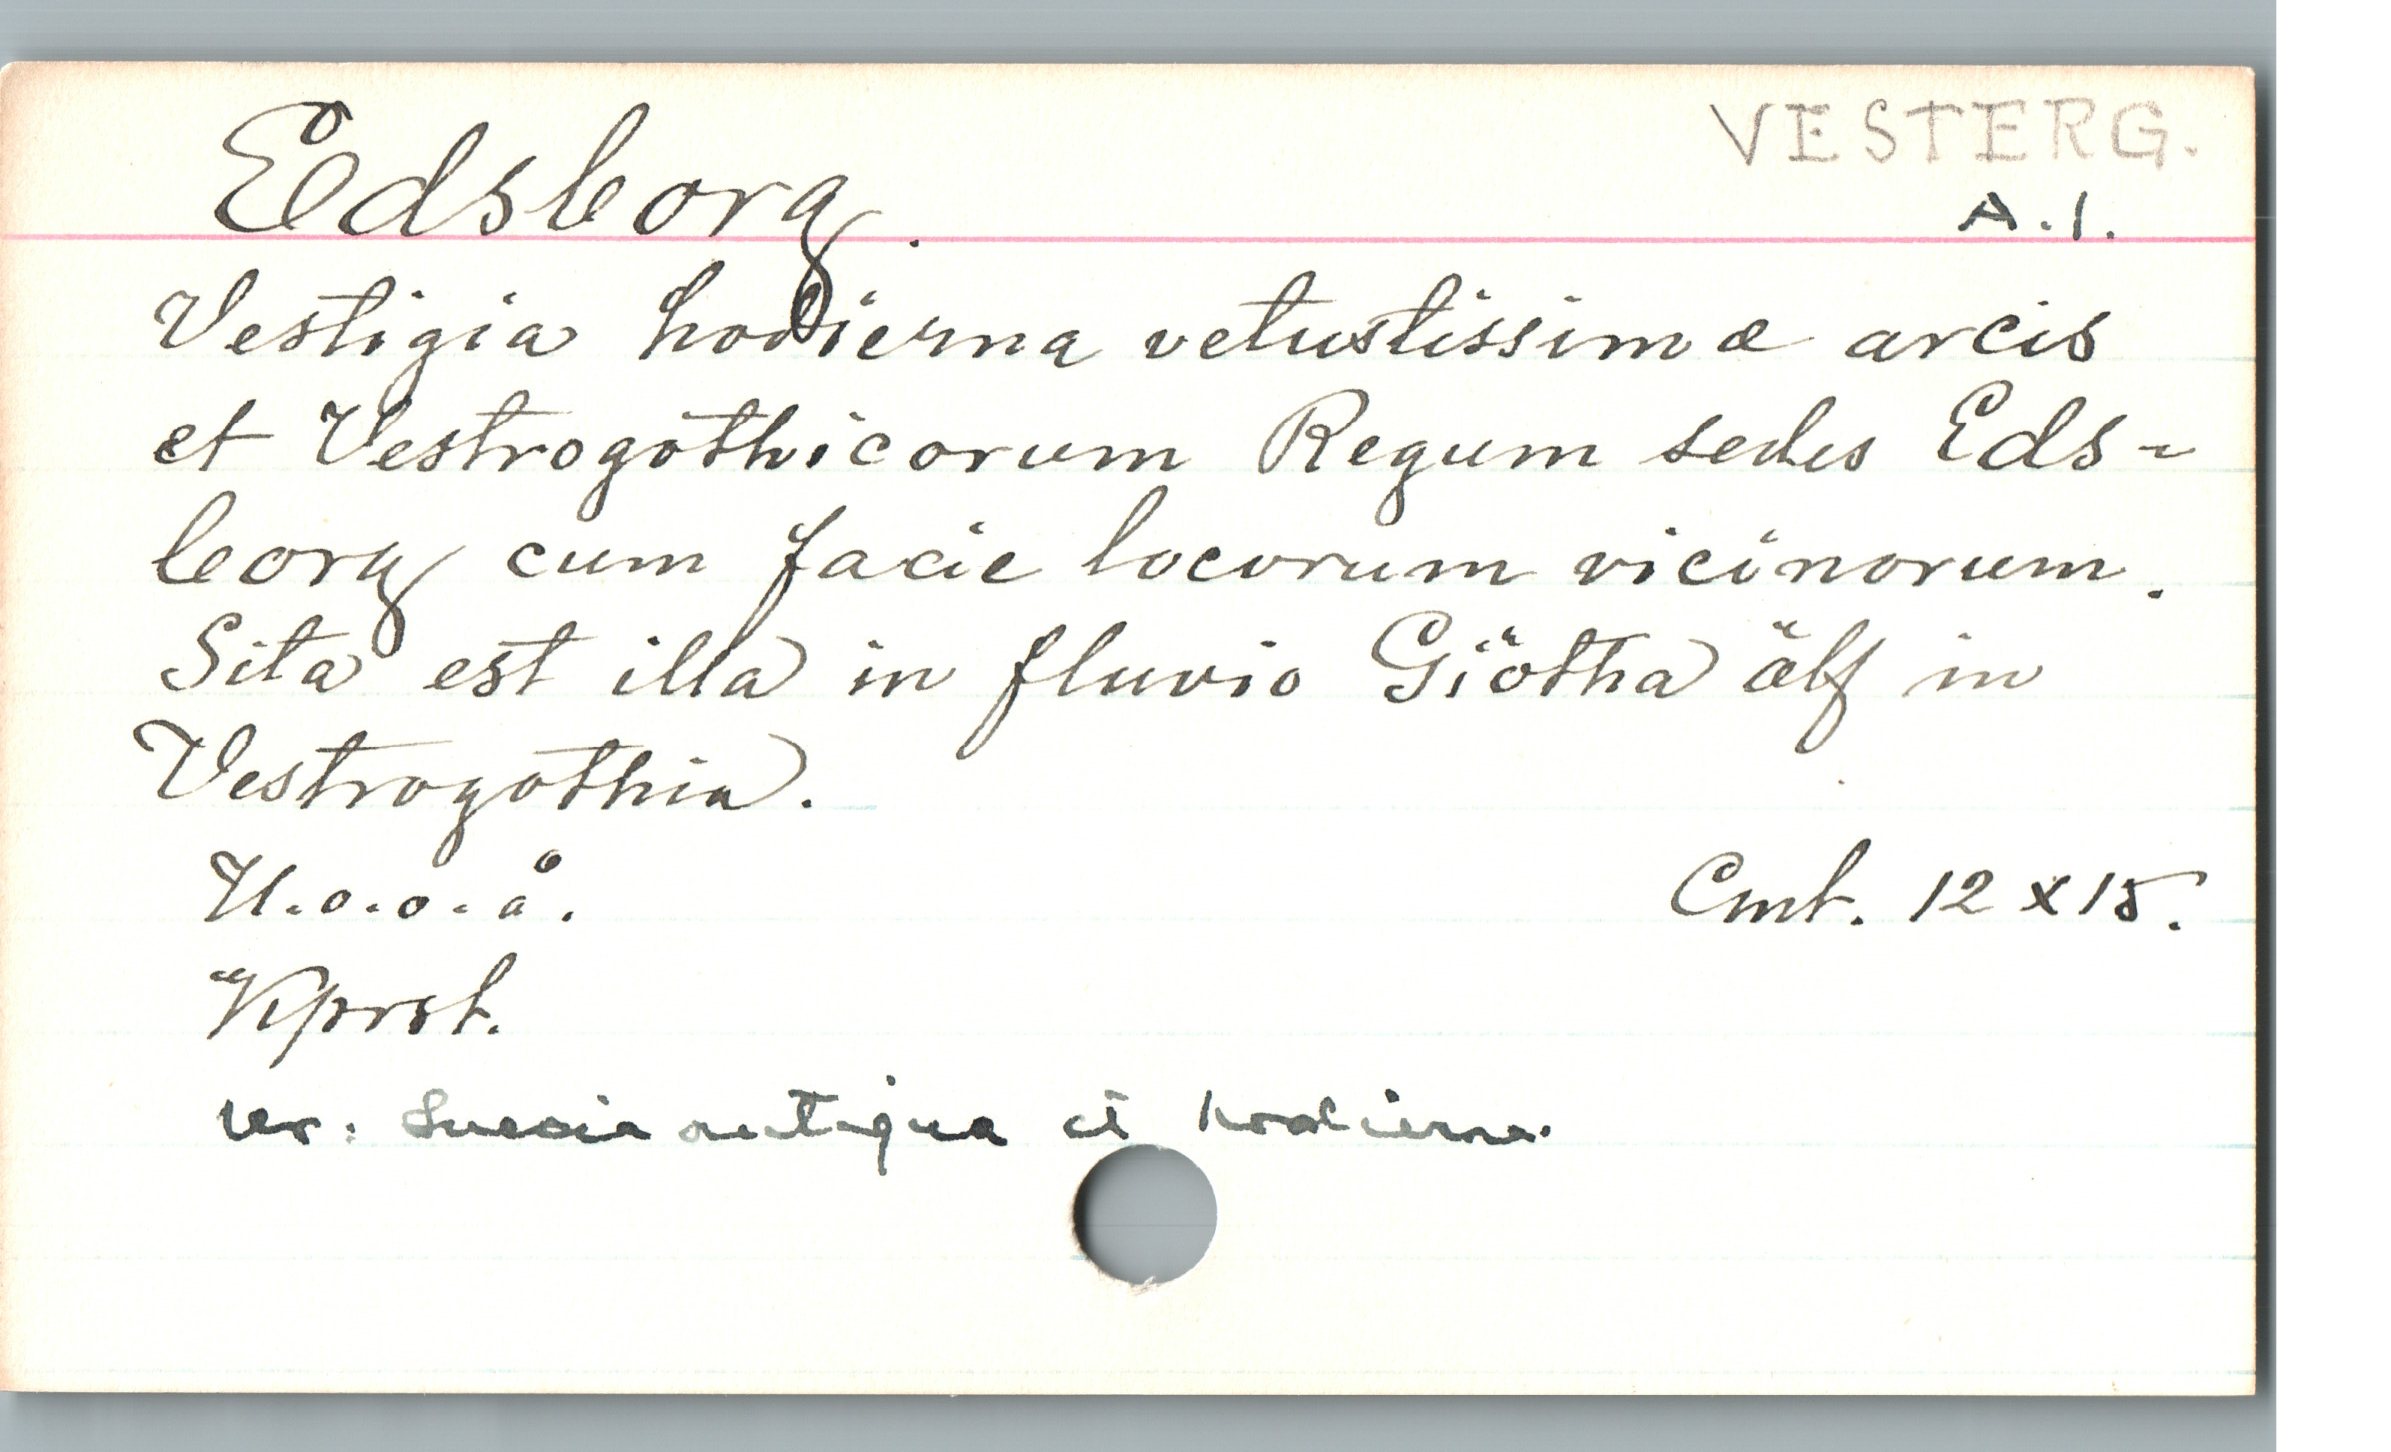 VESTERG.
Edsborg.
A.1.
Vestigia hodierna vetustissimæ arcis
et Vestrogothicorum Regum sedes Eds-
borg cum facie locorum vicinorum.
Sita est illa in fluvio Giötha älf in
Vestrogothia.
U.o.o.å.
Cmt. 12 x 15.
Kprst.
Ur: Suecia antiqua et hodierna.